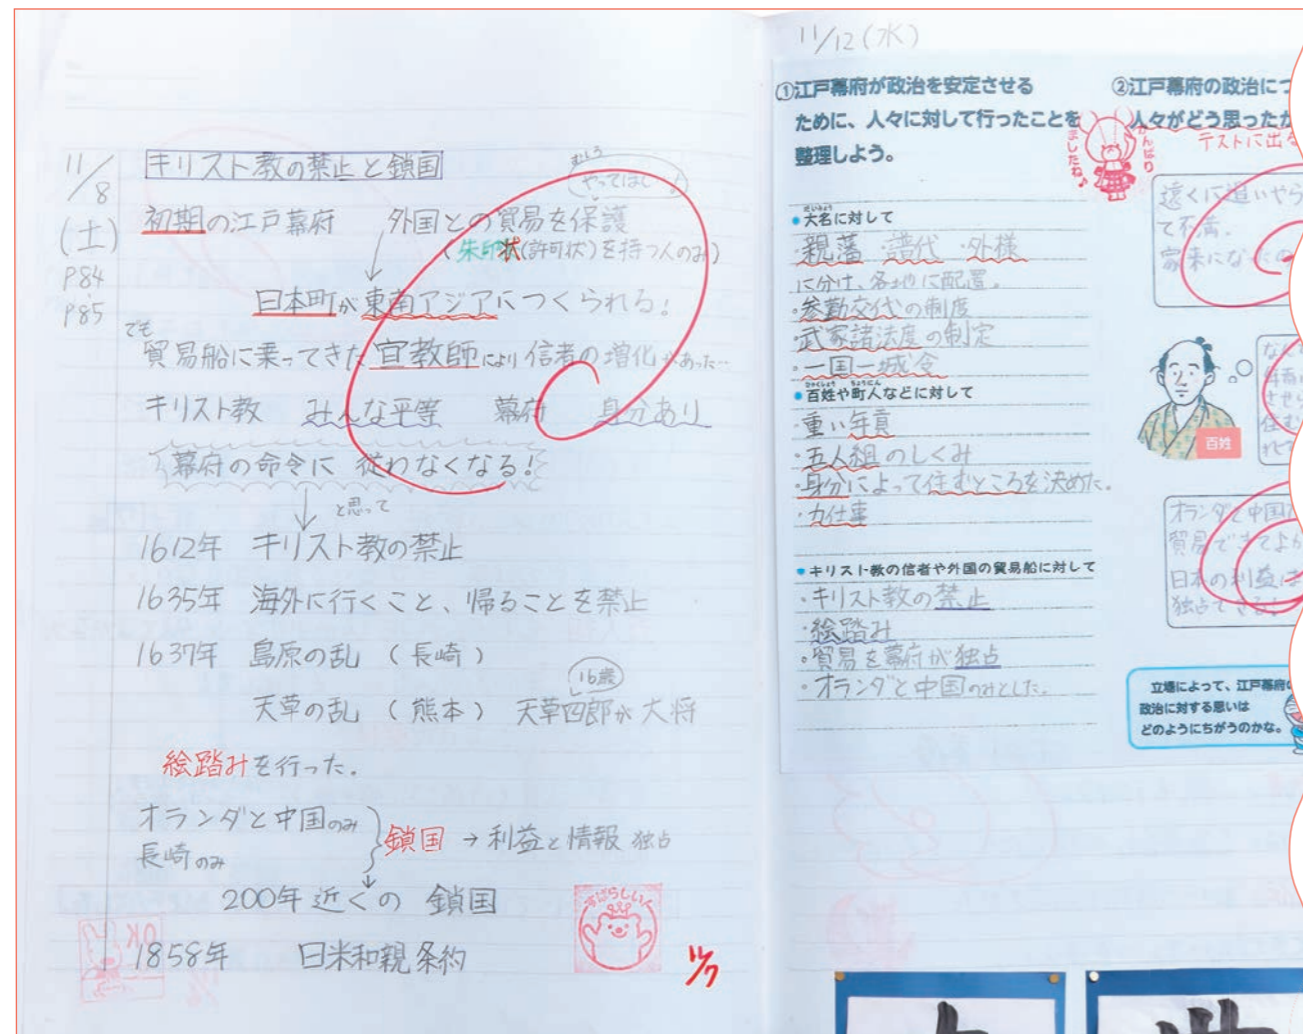 11/8
(土)
P84
P85
キリスト教の禁止と鎖国
むしろ
やってほしい!
初期の江戸幕府 外国との貿易を保護
(朱印状(許可状)を持つ人のみ)
日本町が東南アジアにつくられる!
でも
貿易船に乗ってきた宣教師により信者の増化があった…
キリスト教 みんな平等 幕府 身分あり
幕府の命令に従わなくなる!
と思って
1612年 キリスト教の禁止
1635年 海外に行くこと、帰ることを禁止
1637年 島原の乱 (長崎)
16歳
天草の乱 (熊本) 天草四郎が大将
絵踏みを行った.
オランダと中国のみ
長崎のみ
鎖国 → 利益と情報 独占
200年近くの 鎖国
1858年 日米和親条約
すばらしい
11/7
OK
11/12(水)
①江戸幕府が政治を安定させる
ために、人々に対して行ったことを
整理しよう。
だいみょう
●大名に対して
・親藩 ・譜代 ・外様
に分け、各地に配置。
・参勤交代の制度
・武家諸法度の制定
・一国一城令
ひゃくしょう ちょうにん
●百姓や町人などに対して
・重い年貢
・五人組のしくみ
・身分によって住むところを決めた。
・力仕事
●キリスト教の信者や外国の貿易船に対して
・キリスト教の禁止
・絵踏み
・貿易を幕府が独占
・オランダと中国のみとした。
②江戸幕府の政治につ
人々がどう思ったか
がんばり
ましたね♪
テストに出る
遠くに追いやら
て不満.
家来になったの
百姓
オランダと中国
貿易できてよか
日本の利益は
独占できる!
立場によって、江戸幕府の
政治に対する思いは
どのようにちがうのかな。